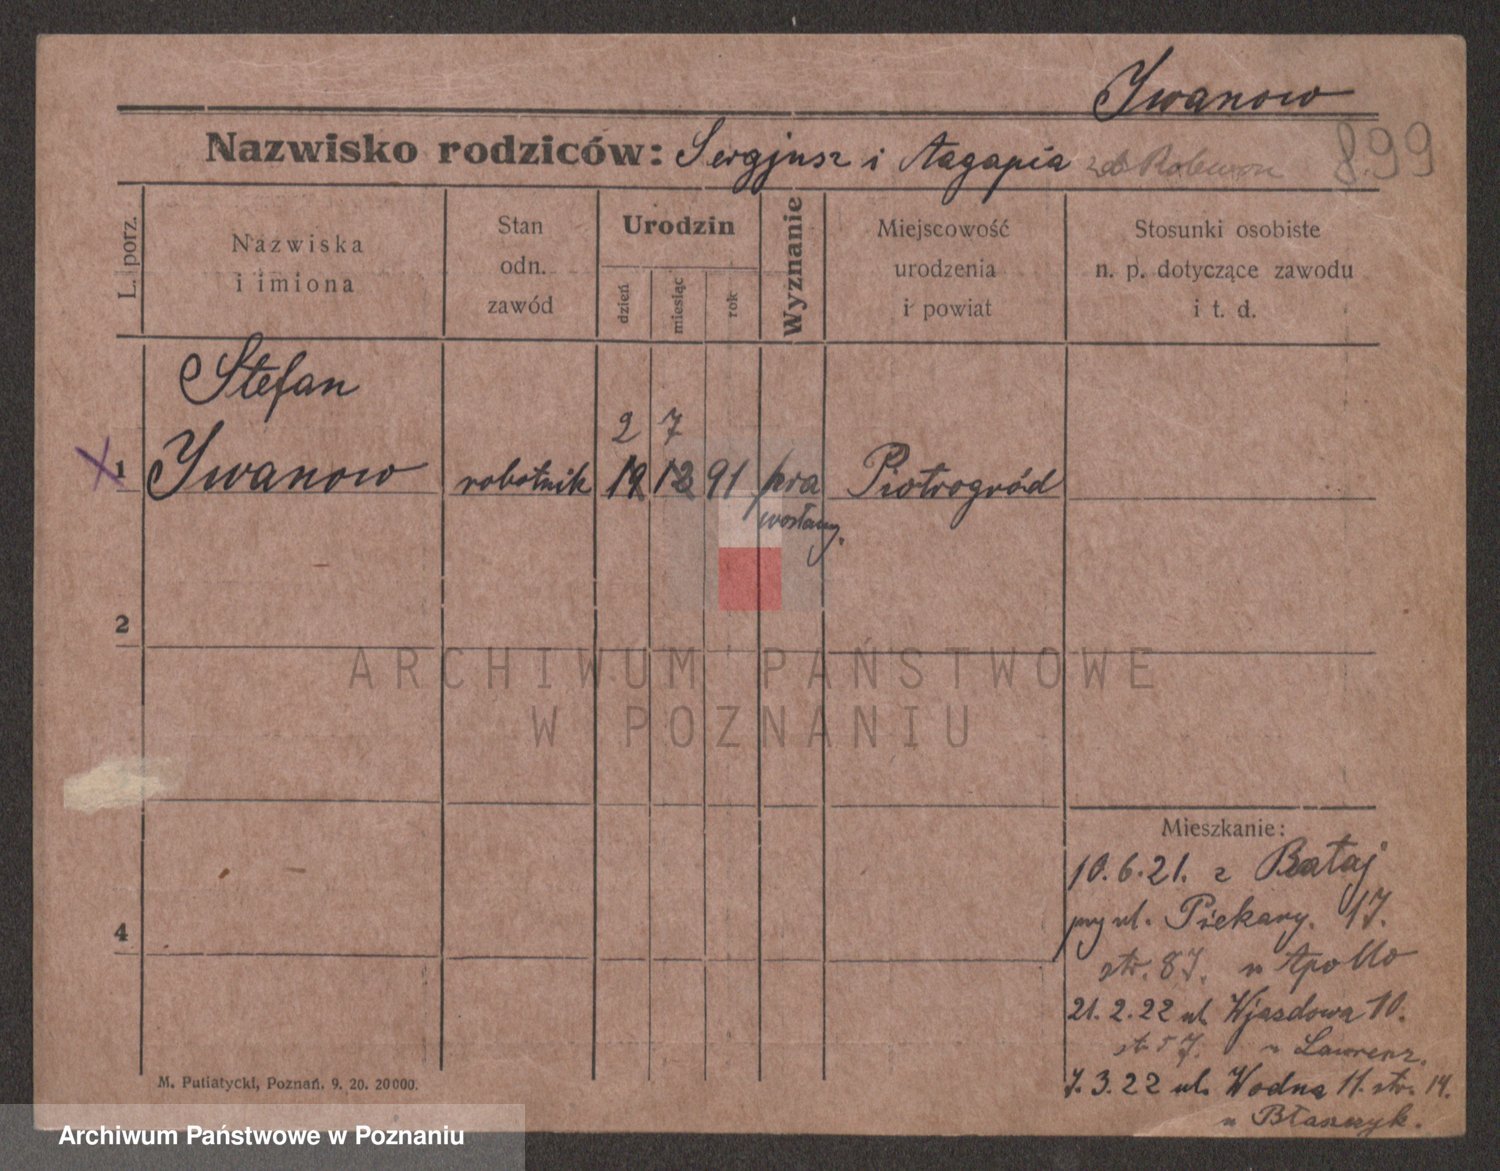 Ywanow
Nazwisko rodziców: Sergjusz i Aagapia
8.99
L. porz.
Nazwiska
i imiona
Stan
odn.
zawód
Urodzin
dzień
miesiąc
rok
Wyznanie
Miejscowość
urodzenia
i powiat
Stosunki osobiste
n. p. dotyczące zawodu
i t. d.
Stefan
2 7
1 Ywanow robotnik 19 12 91 pra Piotrogród
wosławny.
2
ARCHIWUM PAŃSTWOWE
W POZNANIU
Mieszkanie:
10.6.21. z Bataj
przy ul. Piekary. 17.
str. 87. u Apollo
4
21.2.22 ul. Wjazdowa 10.
u Lawrenz.
7.3.22 ul. Wodna 11. str. 14.
u Błaszczyk.
M. Putiatycki, Poznań. 9. 20. 20000.
Archiwum Państwowe w Poznaniu